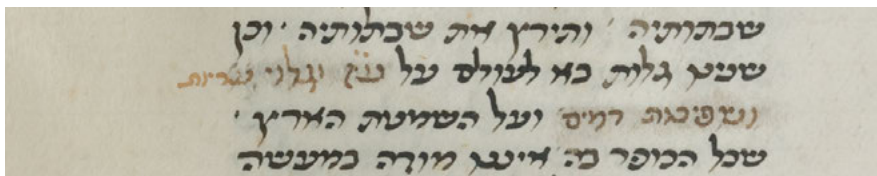 שבתותיה ׳ ותירץ את שבתותיה ׳ וכן
שענין גלות בא לעולם על ע״ז וגלוי עריות
ושפיכות דמים ועל השמטת הארץ ׳
שכל הכופר בה איננו מודה במעשה